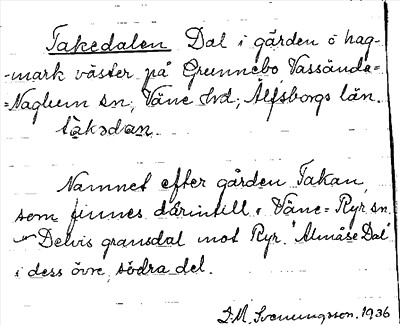 Takedalen Dal i gården o hag-
-mark väster på Grunnebo, Vassända=
=Naglum sn, Väne hd, Älfsborgs län.
tàkədan.
Namnet efter gården Takan,
som finnes därintill i Väne=Ryr sn.
Delvis gränsdal mot Ryr. "Almåse Dal"
i dess övre, södra del.
J.M. Svenungsson. 1936